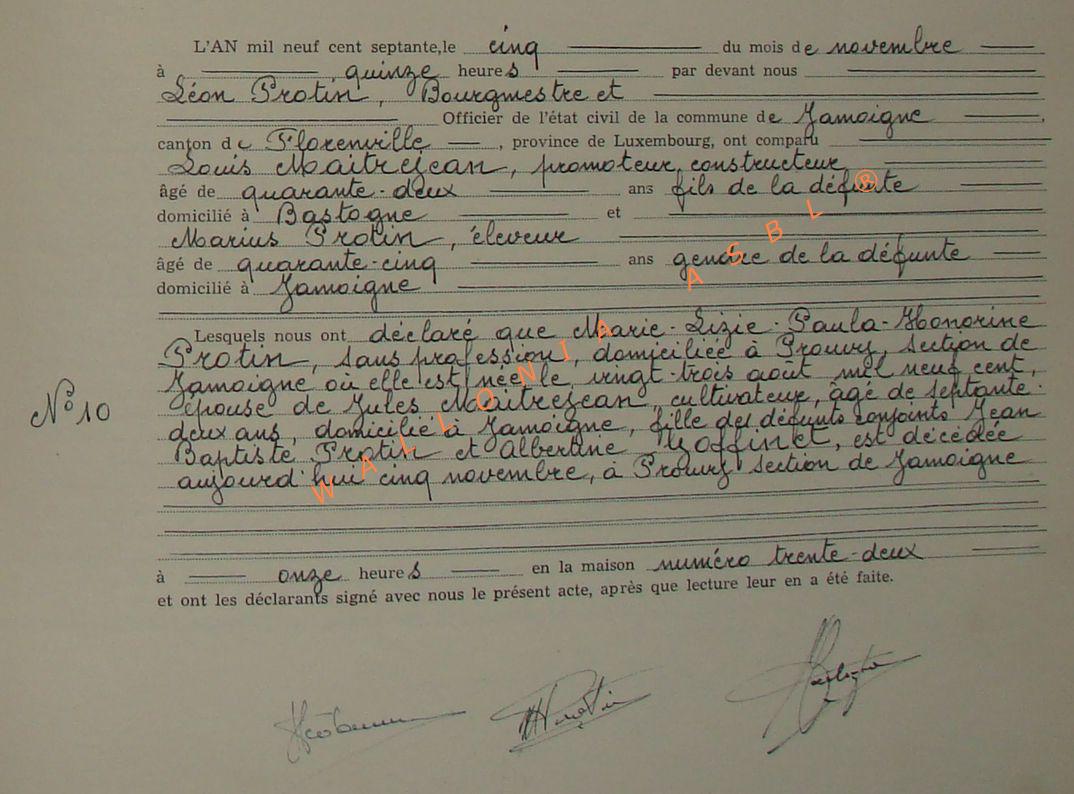 L'AN mil neuf cent septante, le cinq du mois de novembre
à quinze heures par devant nous
Léon Protin, Bourgmestre et
Officier de l'état civil de la commune de Jamoigne,
canton de Florenville, province de Luxembourg, ont comparu
Louis Maitrejean, promoteur, constructeur
âgé de quarante-deux ans fils de la défunte
domicilié à Bastogne et
Marius Protin, éleveur
âgé de quarante-cinq ans gendre de la défunte
domicilié à Jamoigne
Lesquels nous ont déclaré que Marie-Lizie-Paula-Honorine
Protin, sans profession, domiciliée à Prouvy, section de
Jamoigne où elle est née le vingt-trois août mil neuf cent,
épouse de Jules Maitrejean, cultivateur, âgé de septante-
deux ans, domicilié à Jamoigne, fille des défunts conjoints Jean
N° 10
Baptiste Protin et Albertine Goffinet, est décédée
aujourd'hui cinq novembre, à Prouvy section de Jamoigne
à onze heures en la maison numéro trente-deux
et ont les déclarants signé avec nous le présent acte, après que lecture leur en a été faite.
WALLONIA ASBL ®